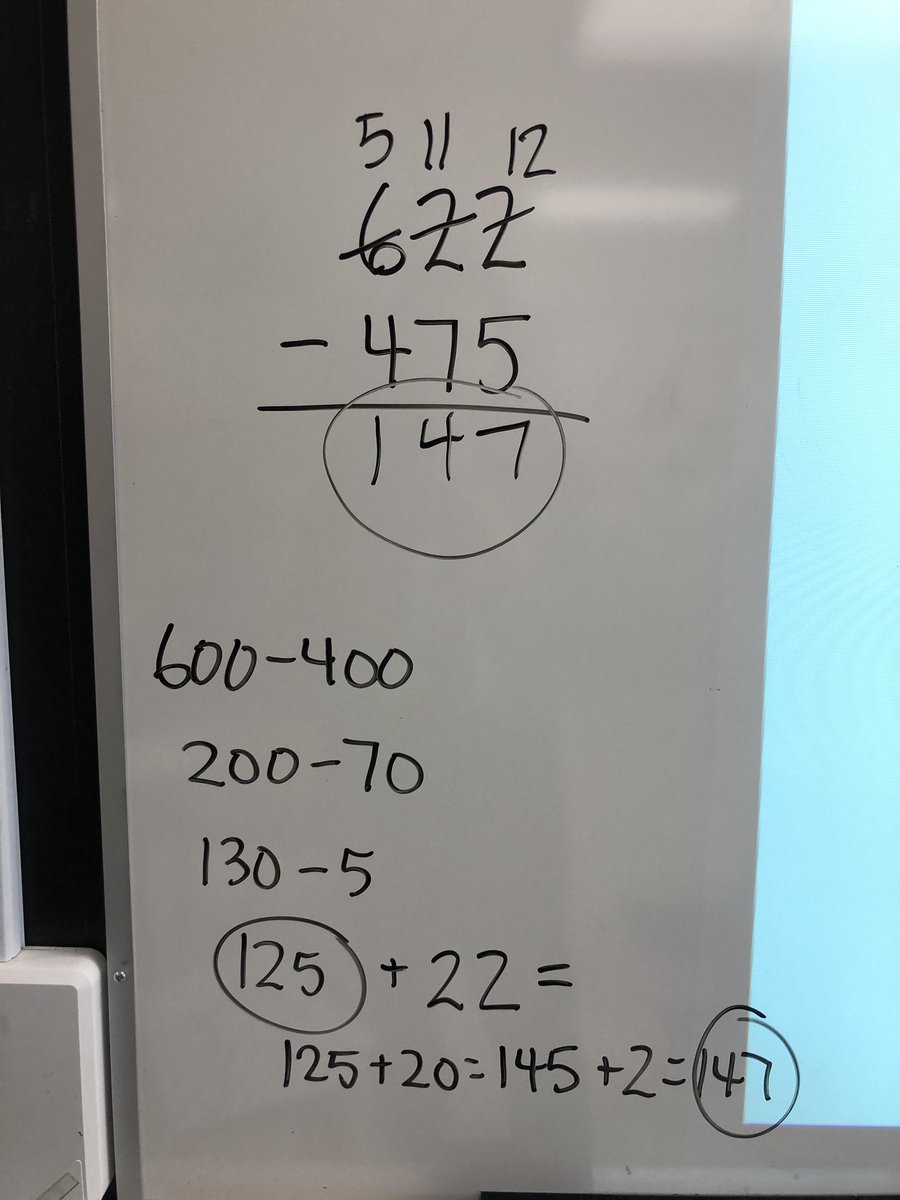 5 11 12
622
- 475
147
600-400
200-70
130-5
125 + 22 =
125+20=145+2=147